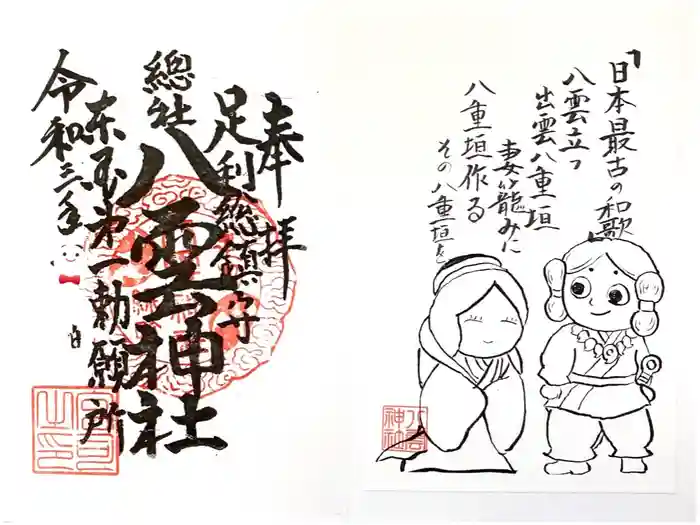 奉拝
足利総鎮守
總社
八雲神社
東国第一勅願所
令和三年
日
宮司之印
「日本最古の和歌
八雲立つ
出雲八重垣
妻籠みに
八重垣作る
その八重垣を
八雲神社